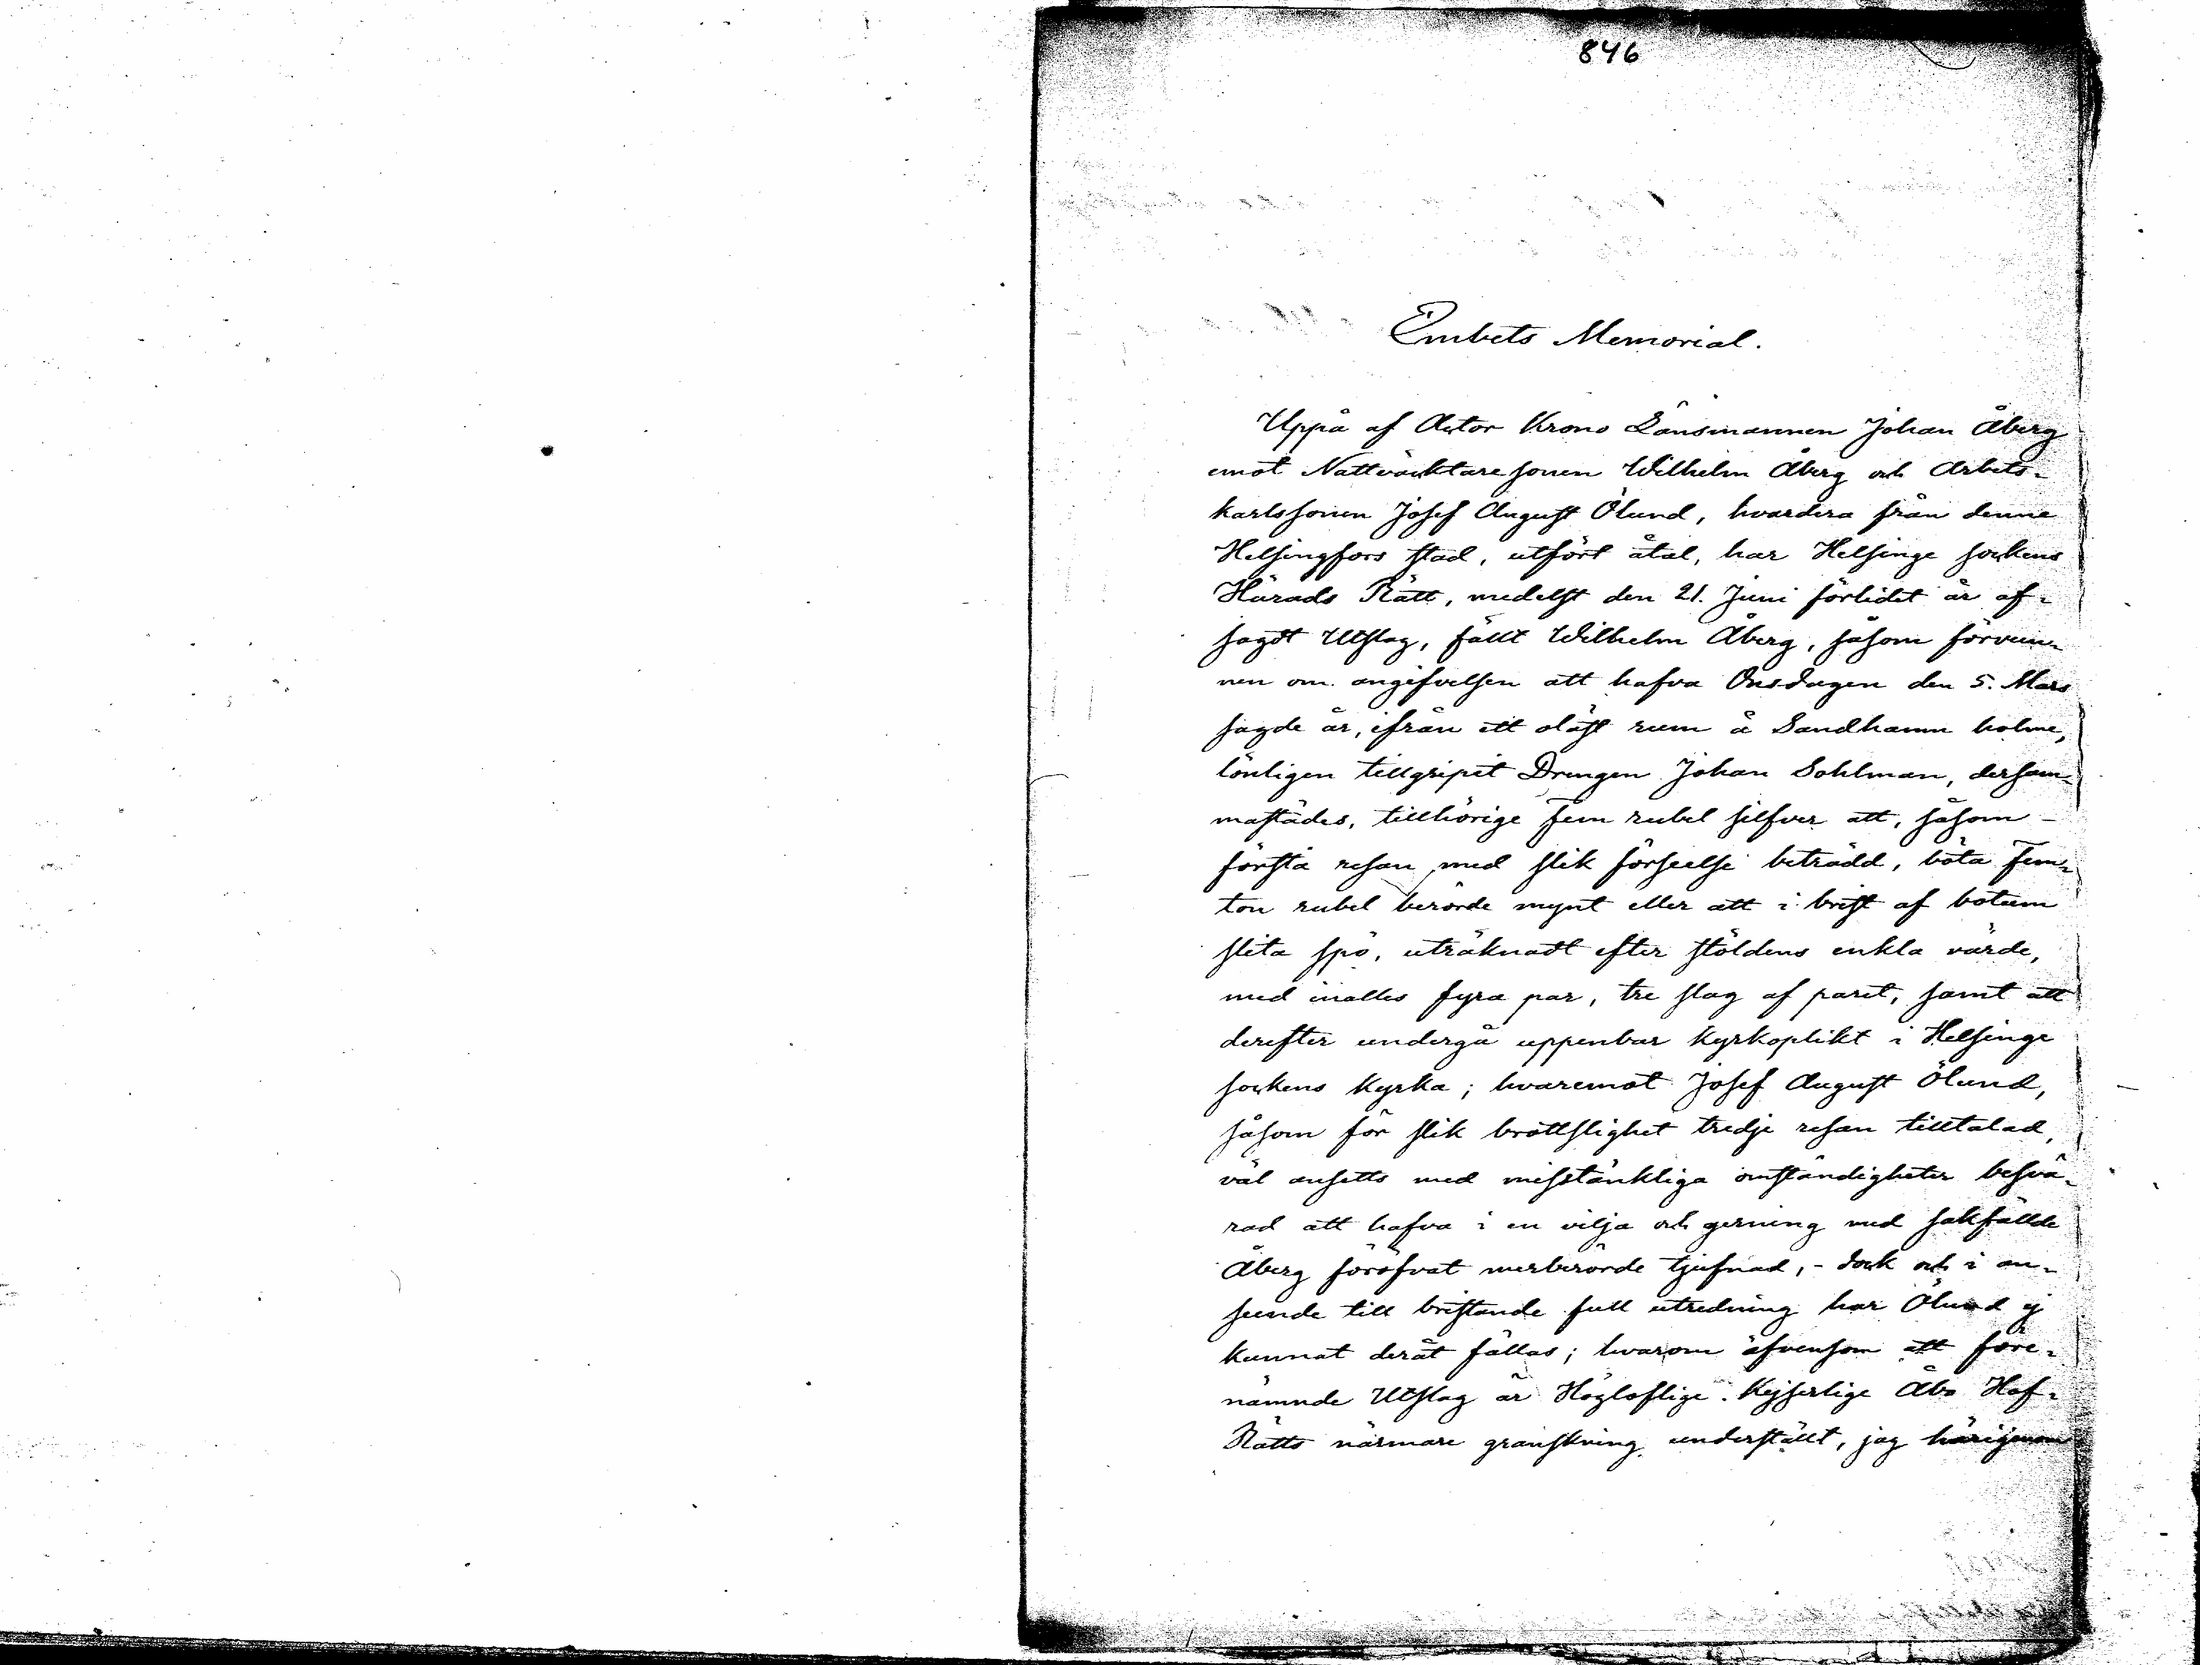 846
Embets Memorial.
Uppå af Actor Krono Länsmannen Johan Åberg
emot Nattväcktare sonen Wilhelm Åberg och Arbets-
karlssonen Josef August Ölund, hvardera från denne
Helsingfors stad, utfört åtal, har Helsinge sockens
Härads Rätt, medelst den 21. Juni förlidet år af-
sagdt Utslag, fällt Wilhelm Åberg, såsom förvun-
nen om angifvelsen att hafva Onsdagen den 5. Mars
sagde år, ifrån ett oläst rum å Sandhamn holme,
lönligen tillgripit Drengen Johan Sohlman, dersam-
mastädes, tillhörige Fem rubel silfver att, såsom –
första resan med slik förseelse beträdd, böta Fem-
ton rubel berörde mynt eller att i brist af botum
slita spö, uträknadt efter stöldens enkla värde,
med inalles fyra par, tre slag af paret, samt att
derefter undergå uppenbar kyrkoplikt i Helsinge
sockens kyrka; hvaremot Josef August Ölund,
såsom för slik brottslighet tredje resan tilltalad,
väl ansetts med misstänkliga omständigheter besvä-
rad att hafva i en vilja och gerning med sakfällde
Åberg föröfvat merberörde tjufnad, – dock och i an-
seende till bristande full utredning har Ölund ej
kunnat deråt fällas; hvarom äfvensom att före-
nämnde Utslag är Högloflige Kejserlige Åbo Hof-
Rätts närmare granskning underställt, jag härigenom